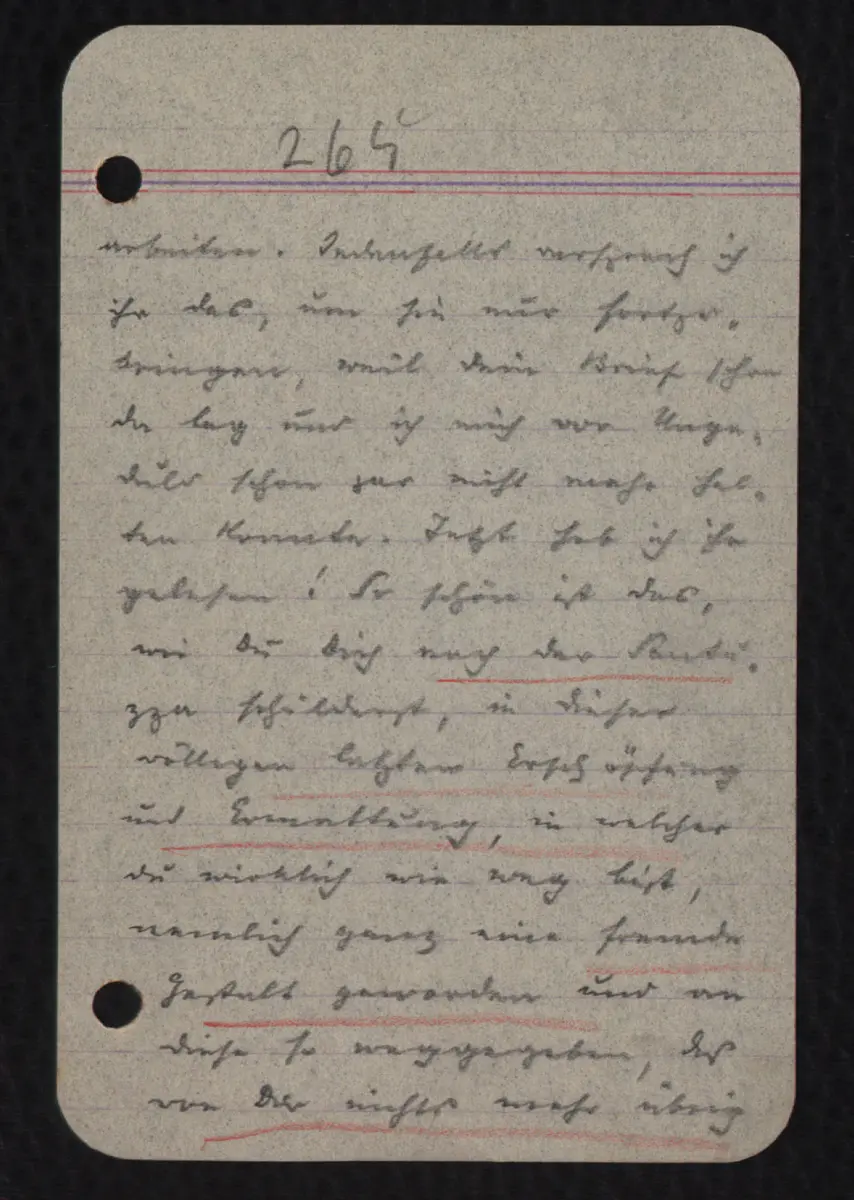 265
arbeiten. Jedenfalls versprach ich
ihr das, um sie nur fortzu-
bringen, weil dein Brief schon
da lag und ich mich vor Unge-
duld schon gar nicht mehr hal-
ten konnte. Jetzt hab ich ihn
gelesen! So schön ist das,
wie Du Dich nach der Santu-
zza schilderst, in dieser
völligen letzten Erschöpfung
und Ermattung, in welcher
du wirklich wie weg bist,
nemlich ganz eine fremde
Gestalt geworden und an
diese so weggegeben, daß
von Dir nichts mehr übrig